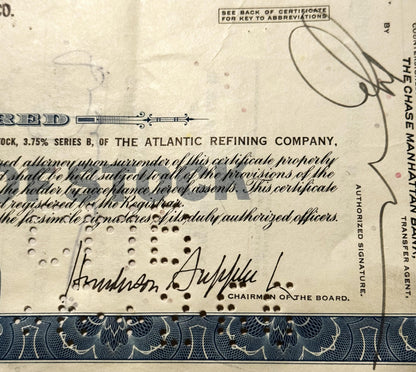 CO.
SEE BACK OF CERTIFICATE
FOR KEY TO ABBREVIATIONS
RED
TOCK, 3.75% SERIES B, OF THE ATLANTIC REFINING COMPANY,
attorney upon surrender of this certificate properly
shall be held subject to all of the provisions of the
the holder by acceptance hereof assents. This certificate
registered by the Registrar.
the facsimile signatures of its duly authorized officers.
Henderson Supplee Jr
CHAIRMAN OF THE BOARD.
BY
THE CHASE MANHATTAN BANK,
TRANSFER AGENT,
AUTHORIZED SIGNATURE.